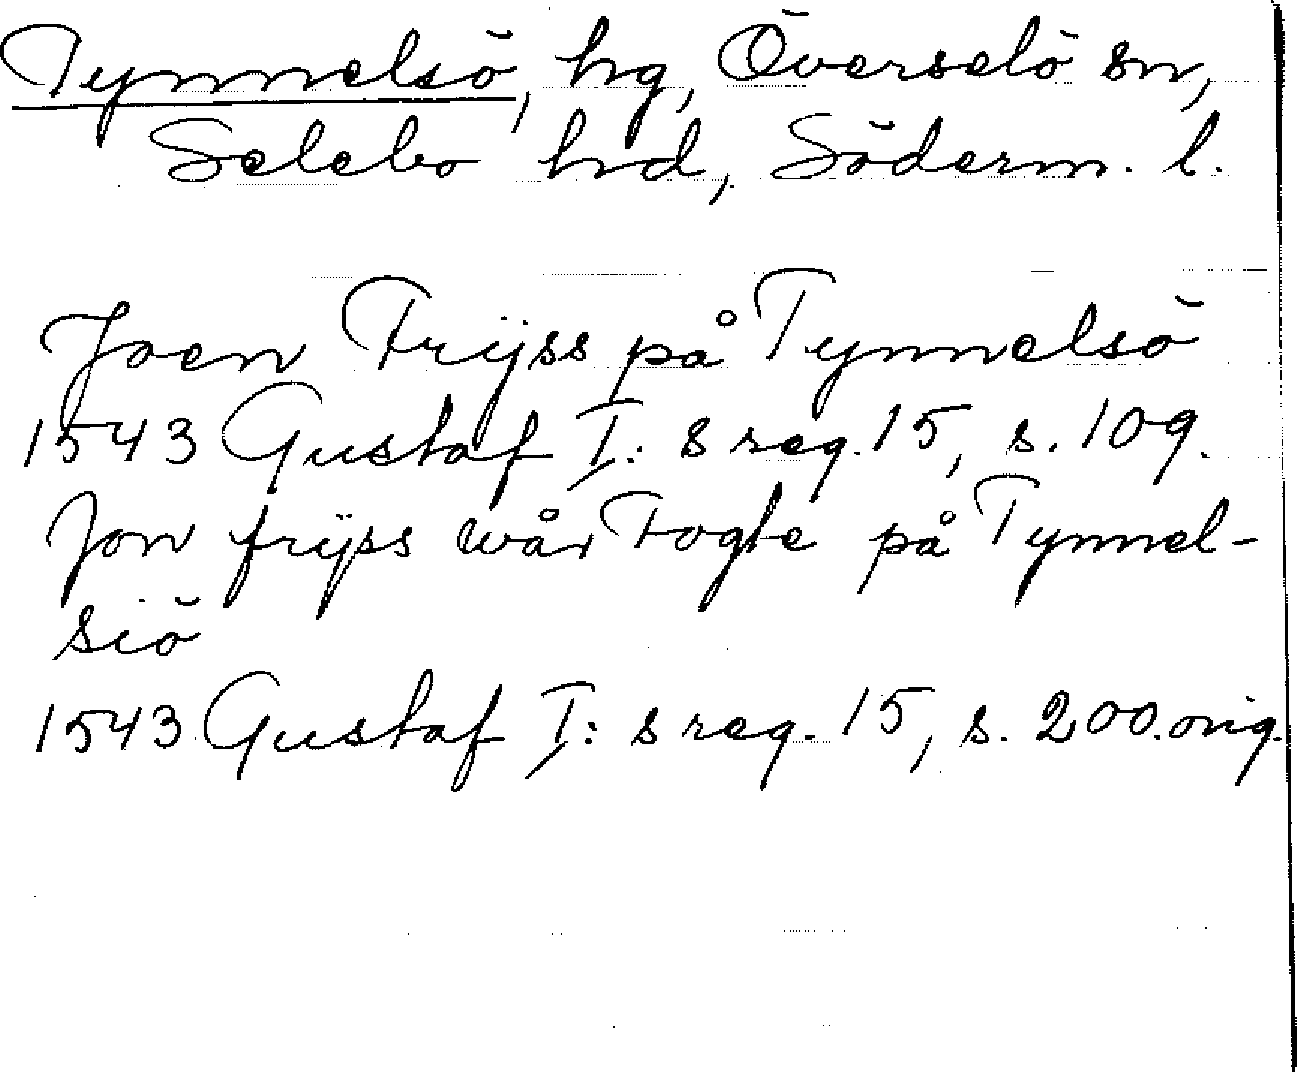 Tynnelsö, hg, Överselö sn,
Selebo hd, Söderm. l.
Joen Frijss på Tynnelsö
1543 Gustaf I: s reg. 15, s. 109.
Jon frijss wår Fogte på Tynnel-
siö
1543 Gustaf I: s reg. 15, s. 200. orig.